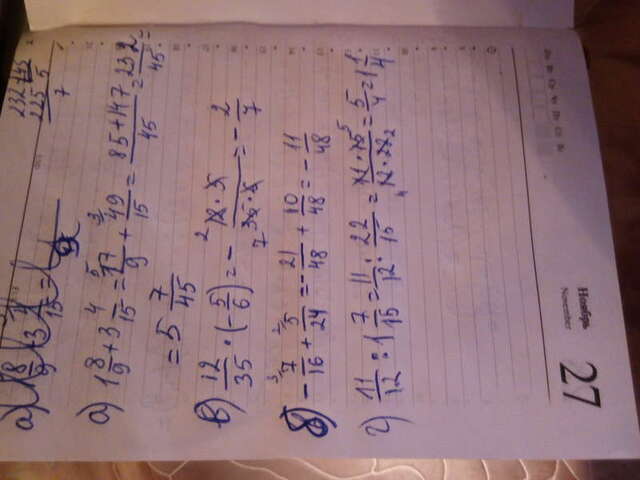 а) 1 8/9 + 3 4/15 =
232 | 45
225 | 5
7
а) 1 8/9 + 3 4/15 = 17/9 + 49/15 = (85+147)/45 = 232/45 =
= 5 7/45
в) 12/35 · (-5/6) = - (12·5)/(35·6) = - 2/7
б) - 7/16 + 5/24 = - 21/48 + 10/48 = - 11/48
г) 11/12 : 1 7/15 = 11/12 : 22/15 = (11·15)/(12·22) = 5/4 = 1 1/4
27 Ноябрь
November